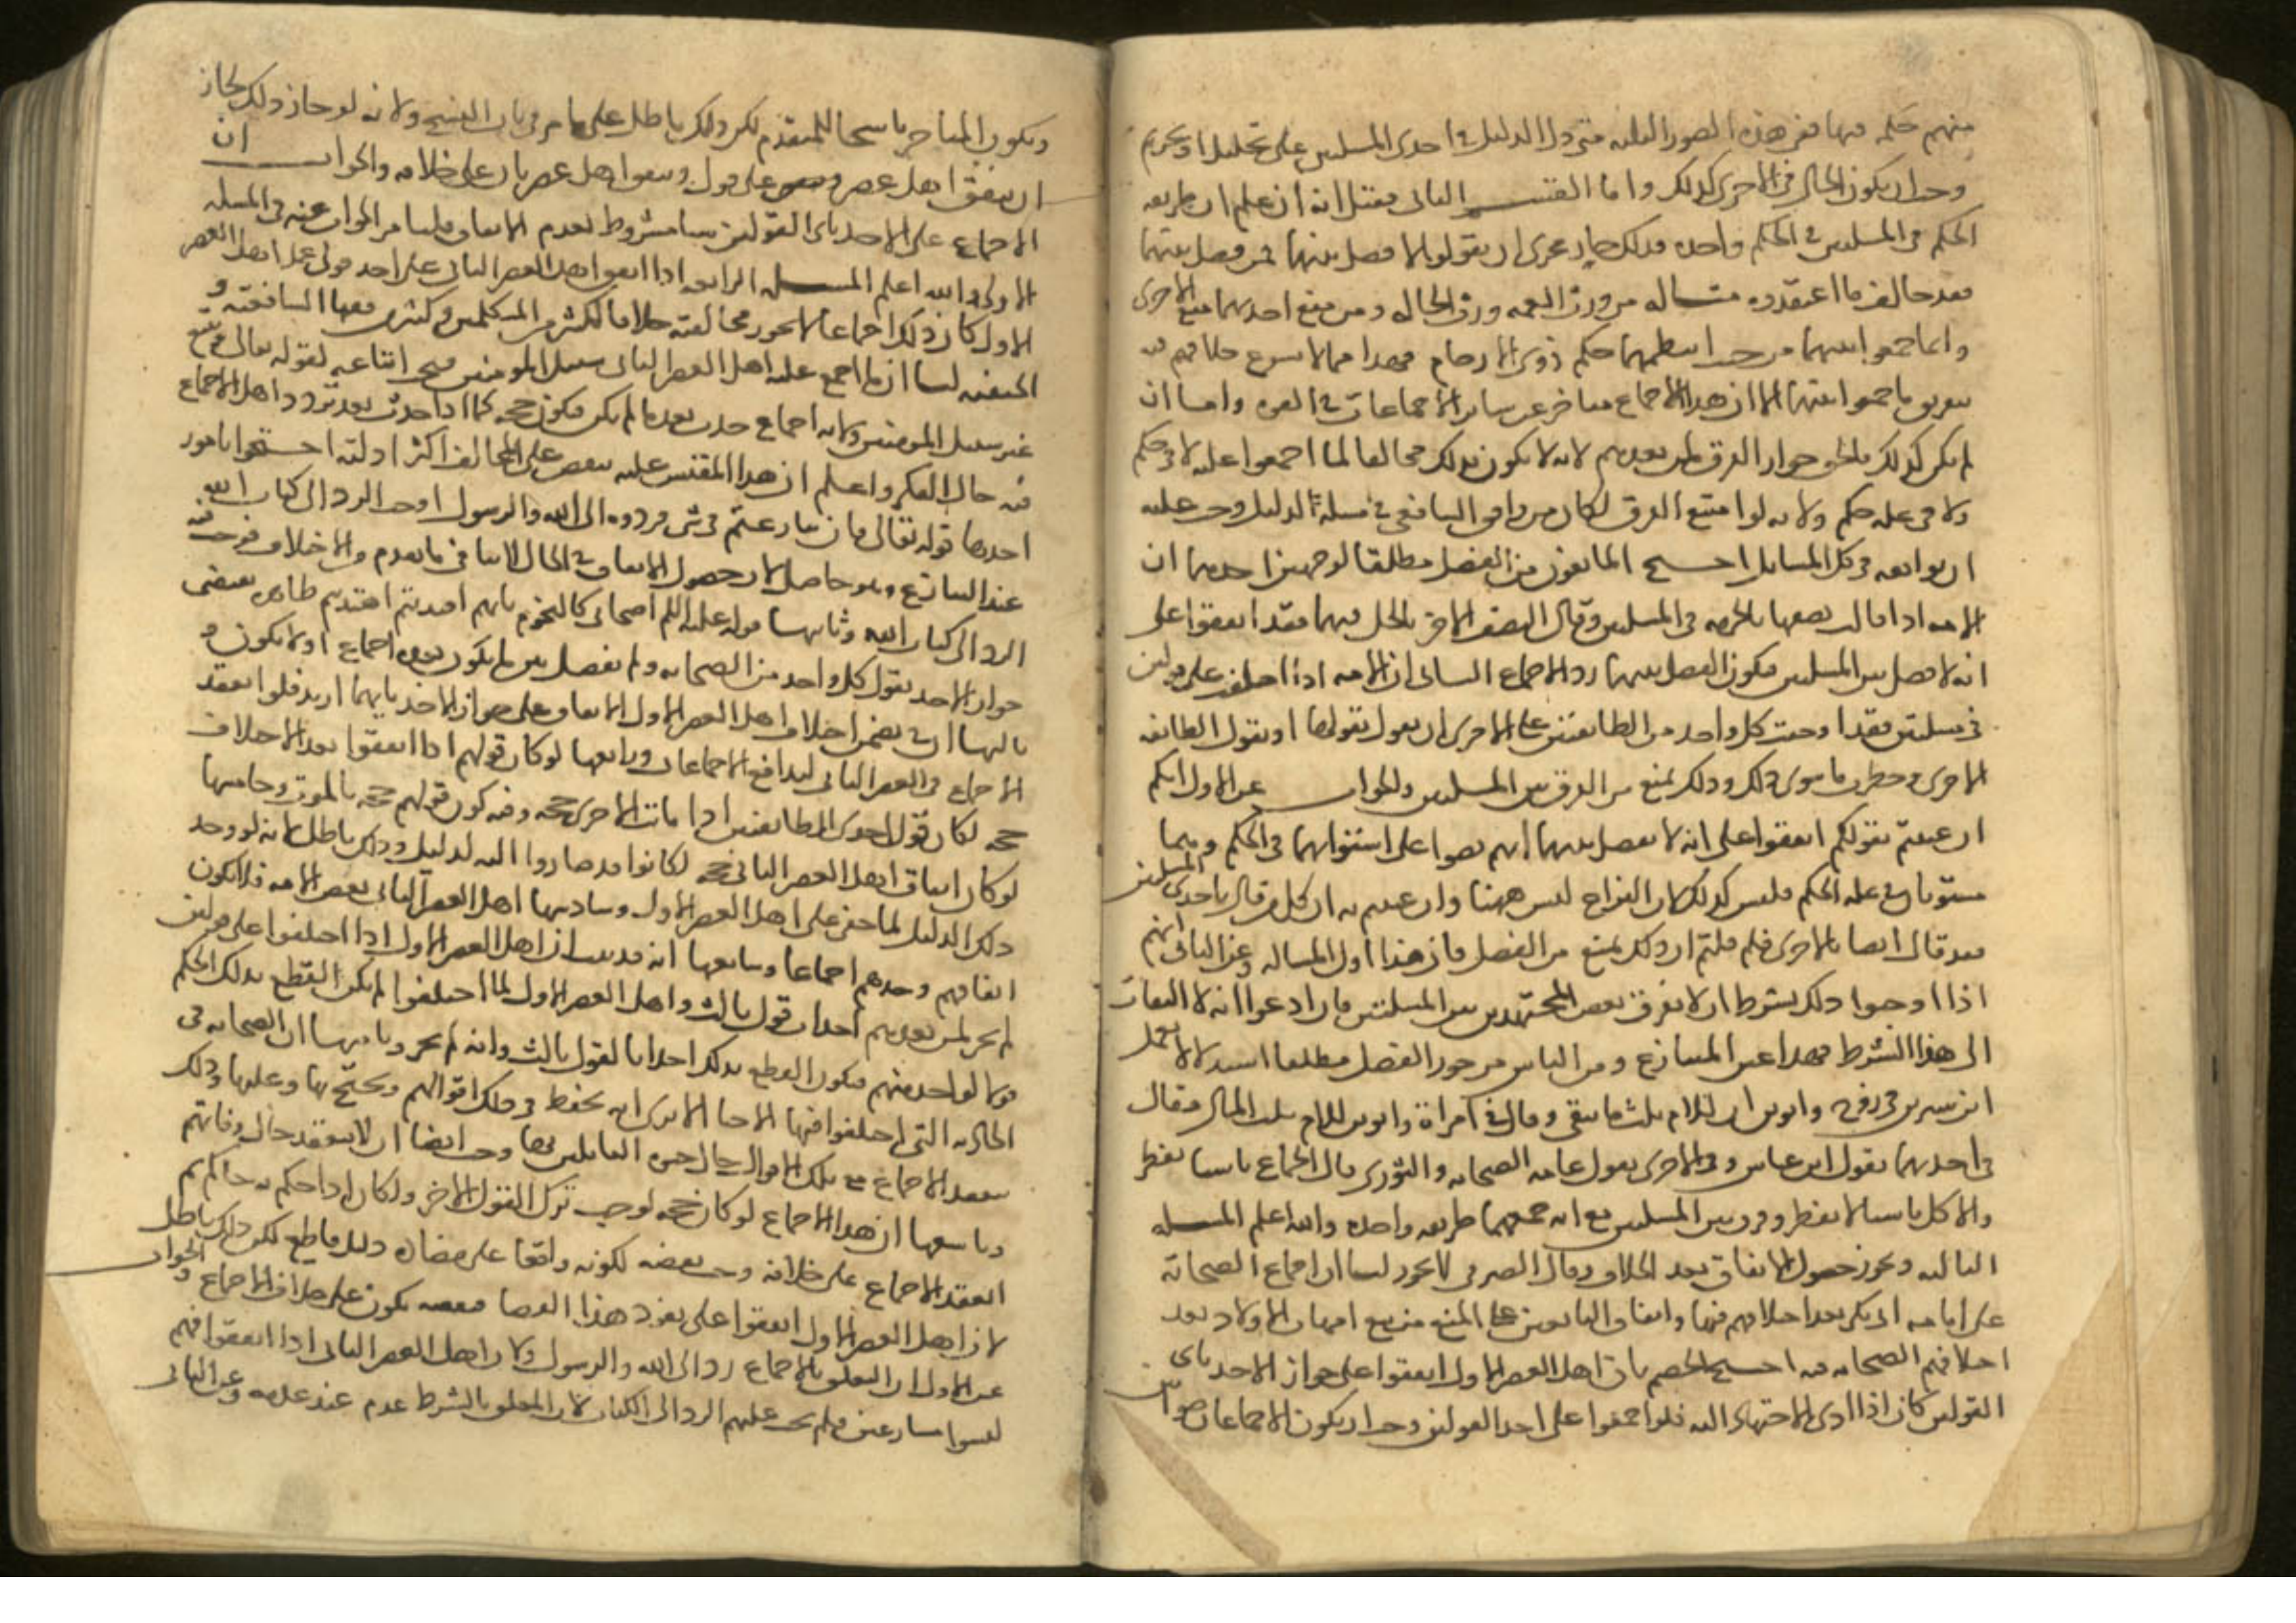 منهم حكمه فيها ففى هذه الصور الثلثه متى دل الدليل فى احدى المسلتين على تحليل او تحريم
وجب ان يكون الحال فى الاخرى كذلك واما القسم الثانى فقيل انه ان علم ان طريقه
الحكم فى المسلتين فى الحكم واحده فذلك جار مجرى ان يقولوا لا فصل بينهما فمن فصل بينهما
فقد خالف ما اعتقدوه مثاله من ورث العمه ورث الخاله ومن منع احديهما منع الاخرى
وانما جمعوا بينهما من حيث انتظمهما حكم ذوى الارحام فهذا مما لا يسوغ خلافهم فيه
بتفريق ما جمعوا بينهما الا ان هذا الاجماع متاخر عن ساير الاجماعات فى القوه واما ان
لم يكن كذلك فالحق جواز الفرق لمن بعدهم لانه لا يكون بذلك مخالفا لما اجمعوا عليه لا فى حكم
ولا فى عله حكم ولانه لو امتنع الفرق لكان من وافق الشافعى فى مسلة لدليل وجب عليه
ان يوافقه فى كل المسايل احتج المانعون من الفصل مطلقا لوجهين احدهما ان
الامه اذا قال نصفها بالحرمه فى المسلتين وقال النصف الاخر بالحل فيهما فقد اتفقوا على
انه لا فصل بين المسلتين فيكون الفصل بينهما رد الاجماع الثانى ان الامه اذا اختلفت على قولين
فى مسلتين فقد اوجبت كل واحد من الطايفتين على الاخرى ان يقول بقولها او بقول الطايفه
الاخرى وحظرت ما سوى ذلك وذلك يمنع من الفرق بين المسلتين والجواب عن الاول انكم
ان عنيتم بقولكم اتفقوا على انه لا فصل بينهما انهم نصوا على استوائهما فى الحكم وبينما
مستويان فى عله الحكم فليس كذلك لان النزاع ليس ههنا وان عنيتم به ان كل من قال باحدى المسلتين
فقد قال ايضا بالاخرى فلم قلتم ان ذلك يمنع من الفصل فان هذا اول المساله وعن الثانى انهم
اذا اوجبوا ذلك بشرط ان لا يفرق بعض المجتهدين بين المسلتين فان ادعوا انه لا التفات
الى هذا الشرط فهذا عين المتنازع ومن الناس من جوز الفصل مطلقا استدلالا بعمل
ابن سيرين فى زوج وابوين ان للام ثلث ما بقى وقال فى امراة وابوين للام ثلث المال فقال
فى احديهما بقول ابن عباس وفى الاخرى بقول عامه الصحابه والثورى قال الجماع ناسيا يفطر
والاكل ناسيا لا يفطر وفرق بين المسلتين مع انه جمعهما طريقه واحده والله اعلم المسله
الثالثه ويجوز حصول الاتفاق بعد الخلاف وقال الصيرفى لا يجوز لنا ان اجماع الصحابة
على امامه ابى بكر بعد اختلافهم فيها واتفاق التابعين على المنع من بيع امهات الاولاد بعد
اختلافهم الصحابه فيه احتج الخصم بان اهل العصر الاول اتفقوا على جواز الاخذ باى
القولين كان اذا ادى الاجتهاد اليه فلو اجمعوا على احد القولين وجب ان يكون الاجماعان صوابين
ويكون المتاخر ناسخا للمتقدم لكن ذلك باطل على ما مر فى باب النسخ ولانه لو جاز ذلك لجاز
ان يتفق اهل عصر على قول ويتفق اهل عصر ثان على خلافه والجواب ان
الاجماع على الاخذ باى القولين شا مشروط بعدم الاتفاق فلنا مر الجواب عنه فى المسله
الاولى والله اعلم المسله الرابعه اذا اتفق اهل العصر الثانى على احد قولى اهل العصر
الاول كان ذلك اجماعا لا يجوز مخالفته خلافا لكثير من المتكلمين وكثير من فقها الشافعيه و
الحنفيه لنا ان ما اجمع عليه اهل العصر الثانى سبيل المومنين فيجب اتباعه لقوله تعالى ويتبع
غير سبيل المومنين ولانه اجماع حدث بعد ما لم يكن فيكون حجه كما اذا حدث بعد تردد اهل الاجماع
فيه حال الفكر واعلم ان هذا المقيس عليه ينقض على المخالف اكثر ادلته احتجوا بامور
احدها قوله تعالى فان تنازعتم فى شى فردوه الى الله والرسول اوجب الرد الى كتاب الله
عند التنازع وهو حاصل لان حصول الاتفاق فى الحال لا ينافى ما تقدم والاختلاف فوجب فيه
الرد الى كتاب الله وثانيها قوله عليه السلم اصحابى كالنجوم بايهم اقتديتم اهتديتم ظاهره يقتضى
جواز الاخذ بقول كل واحد من الصحابه ولم يفصل بين ما يكون بعده اجماع او لا يكون و
ثالثها ان فى ضمن اختلاف اهل العصر الاول الاتفاق على جواز الاخذ بايهما اريد فلو انعقد
الاجماع فى العصر الثانى لتدافع الاجماعات ورابعها لو كان قولهم اذا اتفقوا بعد الاختلاف
حجه لكان قول احدى الطايفتين اذا ماتت الاخرى حجه وفيه كون قولهم حجه بالموت وخامسها
لو كان اتفاق اهل العصر الثانى حجه لكانوا قد صاروا اليه لدليل وذلك باطل لانه لو وجد
ذلك الدليل لما خفى على اهل العصر الاول وسادسها اهل العصر الثانى بعض الامه فلا يكون
اتفاقهم وحدهم اجماعا وسابعها انه قد ثبت ان اهل العصر الاول اذا اختلفوا على قولين
لم يجز لمن بعدهم احداث قول ثالث واهل العصر الاول لما اختلفوا لم يكن القطع بذلك الحكم
قولا لواحد منهم فيكون القطع بذلك احداثا لقول ثالث وانه لم يجز وثامنها ان الصحابه فى
الحادثه التى اختلفوا فيها كالاحيا الا ترى انه يحفظ فى ذلك اقوالهم ويحتج بها وعليها وذلك
ينعقد الاجماع على تلك الاقوال حال حيوه القايلين بها وجب ايضا ان لا ينعقد حال وفاتهم
وتاسعها ان هذا الاجماع لو كان حجه لوجب ترك القول الاخر ولكان اذا حكم به حاكم ثم
انعقد الاجماع على خلافه وجب نقضه لكونه واقعا على مضاده دليل قاطع لكن ذلك باطل
لان اهل العصر الاول اتفقوا على نفوذ هذا القضا فنقضه يكون على خلاف الاجماع والجواب
عن الاول ان التعلق بالاجماع رد الى الله والرسول ولان اهل العصر الثانى اذا اتفقوا فهم
ليسوا متنازعين فلم يجب عليهم الرد الى الكتاب لان المعلق بالشرط عدم عند عدمه وعن الثانى